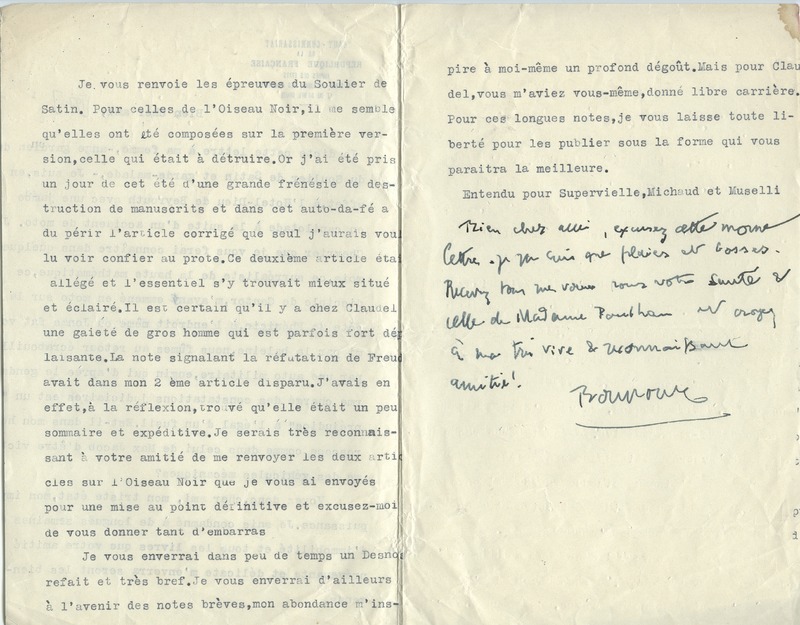 Je vous renvoie les épreuves du Soulier de
Satin. Pour celles de l'Oiseau Noir,il me semble
qu'elles ont été composées sur la première ver-
sion,celle qui était à détruire.Or j'ai été pris
un jour de cet été d'une grande frénésie de des-
truction de manuscrits et dans cet auto-da-fé a
du périr l'article corrigé que seul j'aurais vou
lu voir confier au prote.Ce deuxième article éta
allégé et l'essentiel s'y trouvait mieux situé
et éclairé.Il est certain qu'il y a chez Claudel
une gaieté de gros homme qui est parfois fort dé
laisante.La note signalant la réfutation de Freu
avait dans mon 2 ème article disparu.J'avais en
effet,à la réflexion,trouvé qu'elle était un peu
sommaire et expéditive.Je serais très reconnais-
sant à votre amitié de me renvoyer les deux arti
cles sur l'Oiseau Noir que je vous ai envoyés
pour une mise au point définitive et excusez-moi
de vous donner tant d'embarras
Je vous enverrai dans peu de temps un Desno
refait et très bref.Je vous enverrai d'ailleurs
à l'avenir des notes brèves,mon abondance m'ins-
pire à moi-même un profond dégoût.Mais pour Clau
del,vous m'aviez vous-même,donné libre carrière.
Pour ces longues notes,je vous laisse toute li-
berté pour les publier sous la forme que vous
paraitra la meilleure.
Entendu pour Supervielle,Michaud et Muselli
Bien cher ami, excusez cette morne
lettre. je ne suis que plaies et bosses.
Recevez tous mes voeux pour votre santé &
celle de Madame Paulhan et croyez
à ma très vive & reconnaissante
amitié!
Bounoure